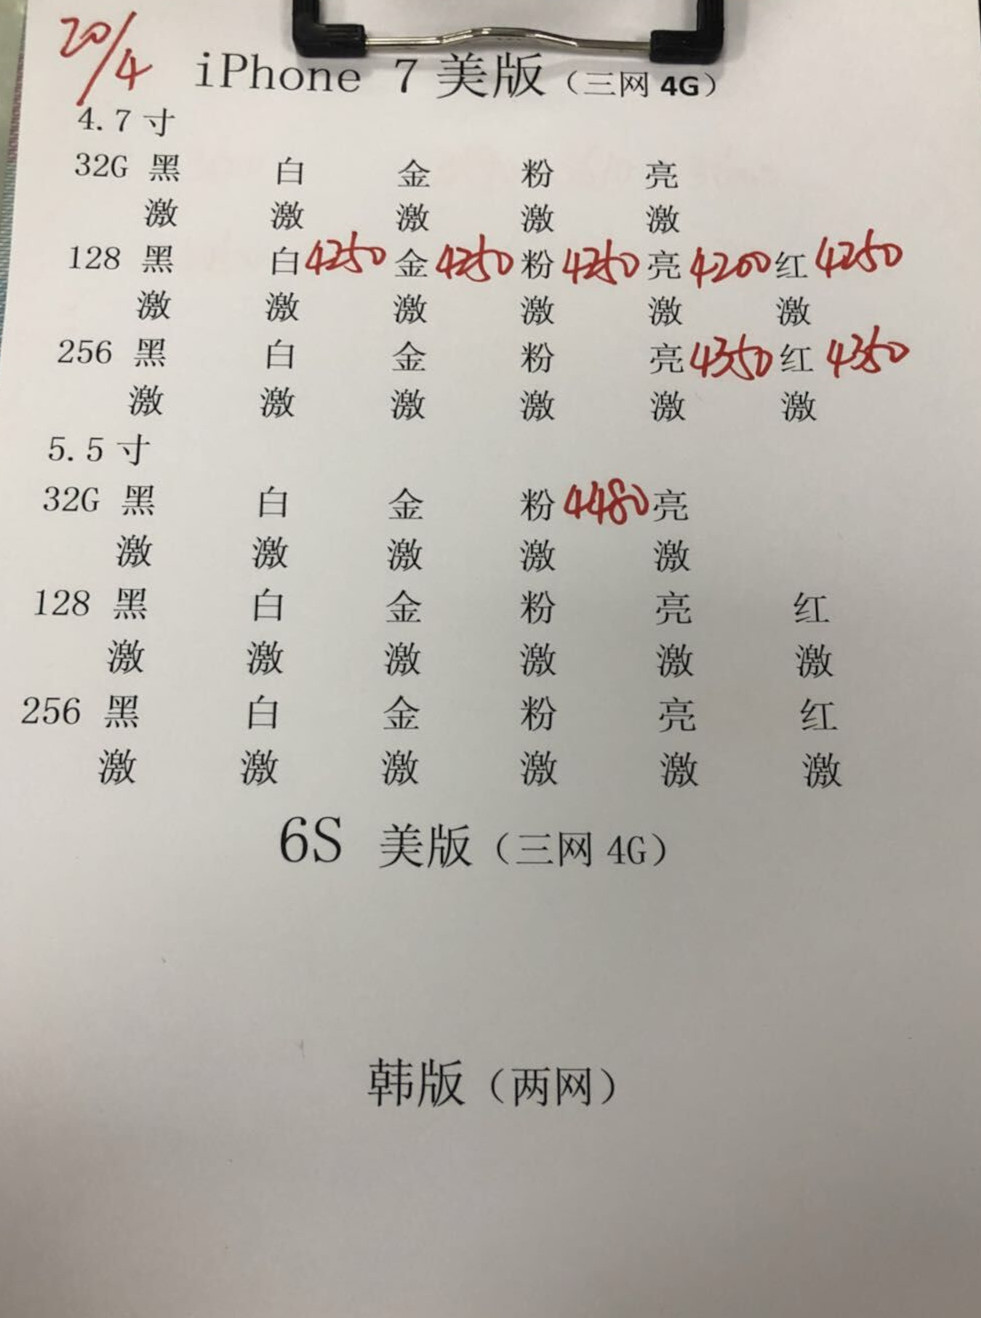 20/4
iPhone 7 美版（三网 4G）
4.7 寸
32G 黑 白 金 粉 亮
激 激 激 激 激
128 黑 白 4250 金 4250 粉 4250 亮 4200 红 4250
激 激 激 激 激 激
256 黑 白 金 粉 亮 4350 红 4350
激 激 激 激 激 激
5.5 寸
32G 黑 白 金 粉 4480 亮
激 激 激 激 激
128 黑 白 金 粉 亮 红
激 激 激 激 激 激
256 黑 白 金 粉 亮 红
激 激 激 激 激 激
6S 美版（三网 4G）
韩版（两网）